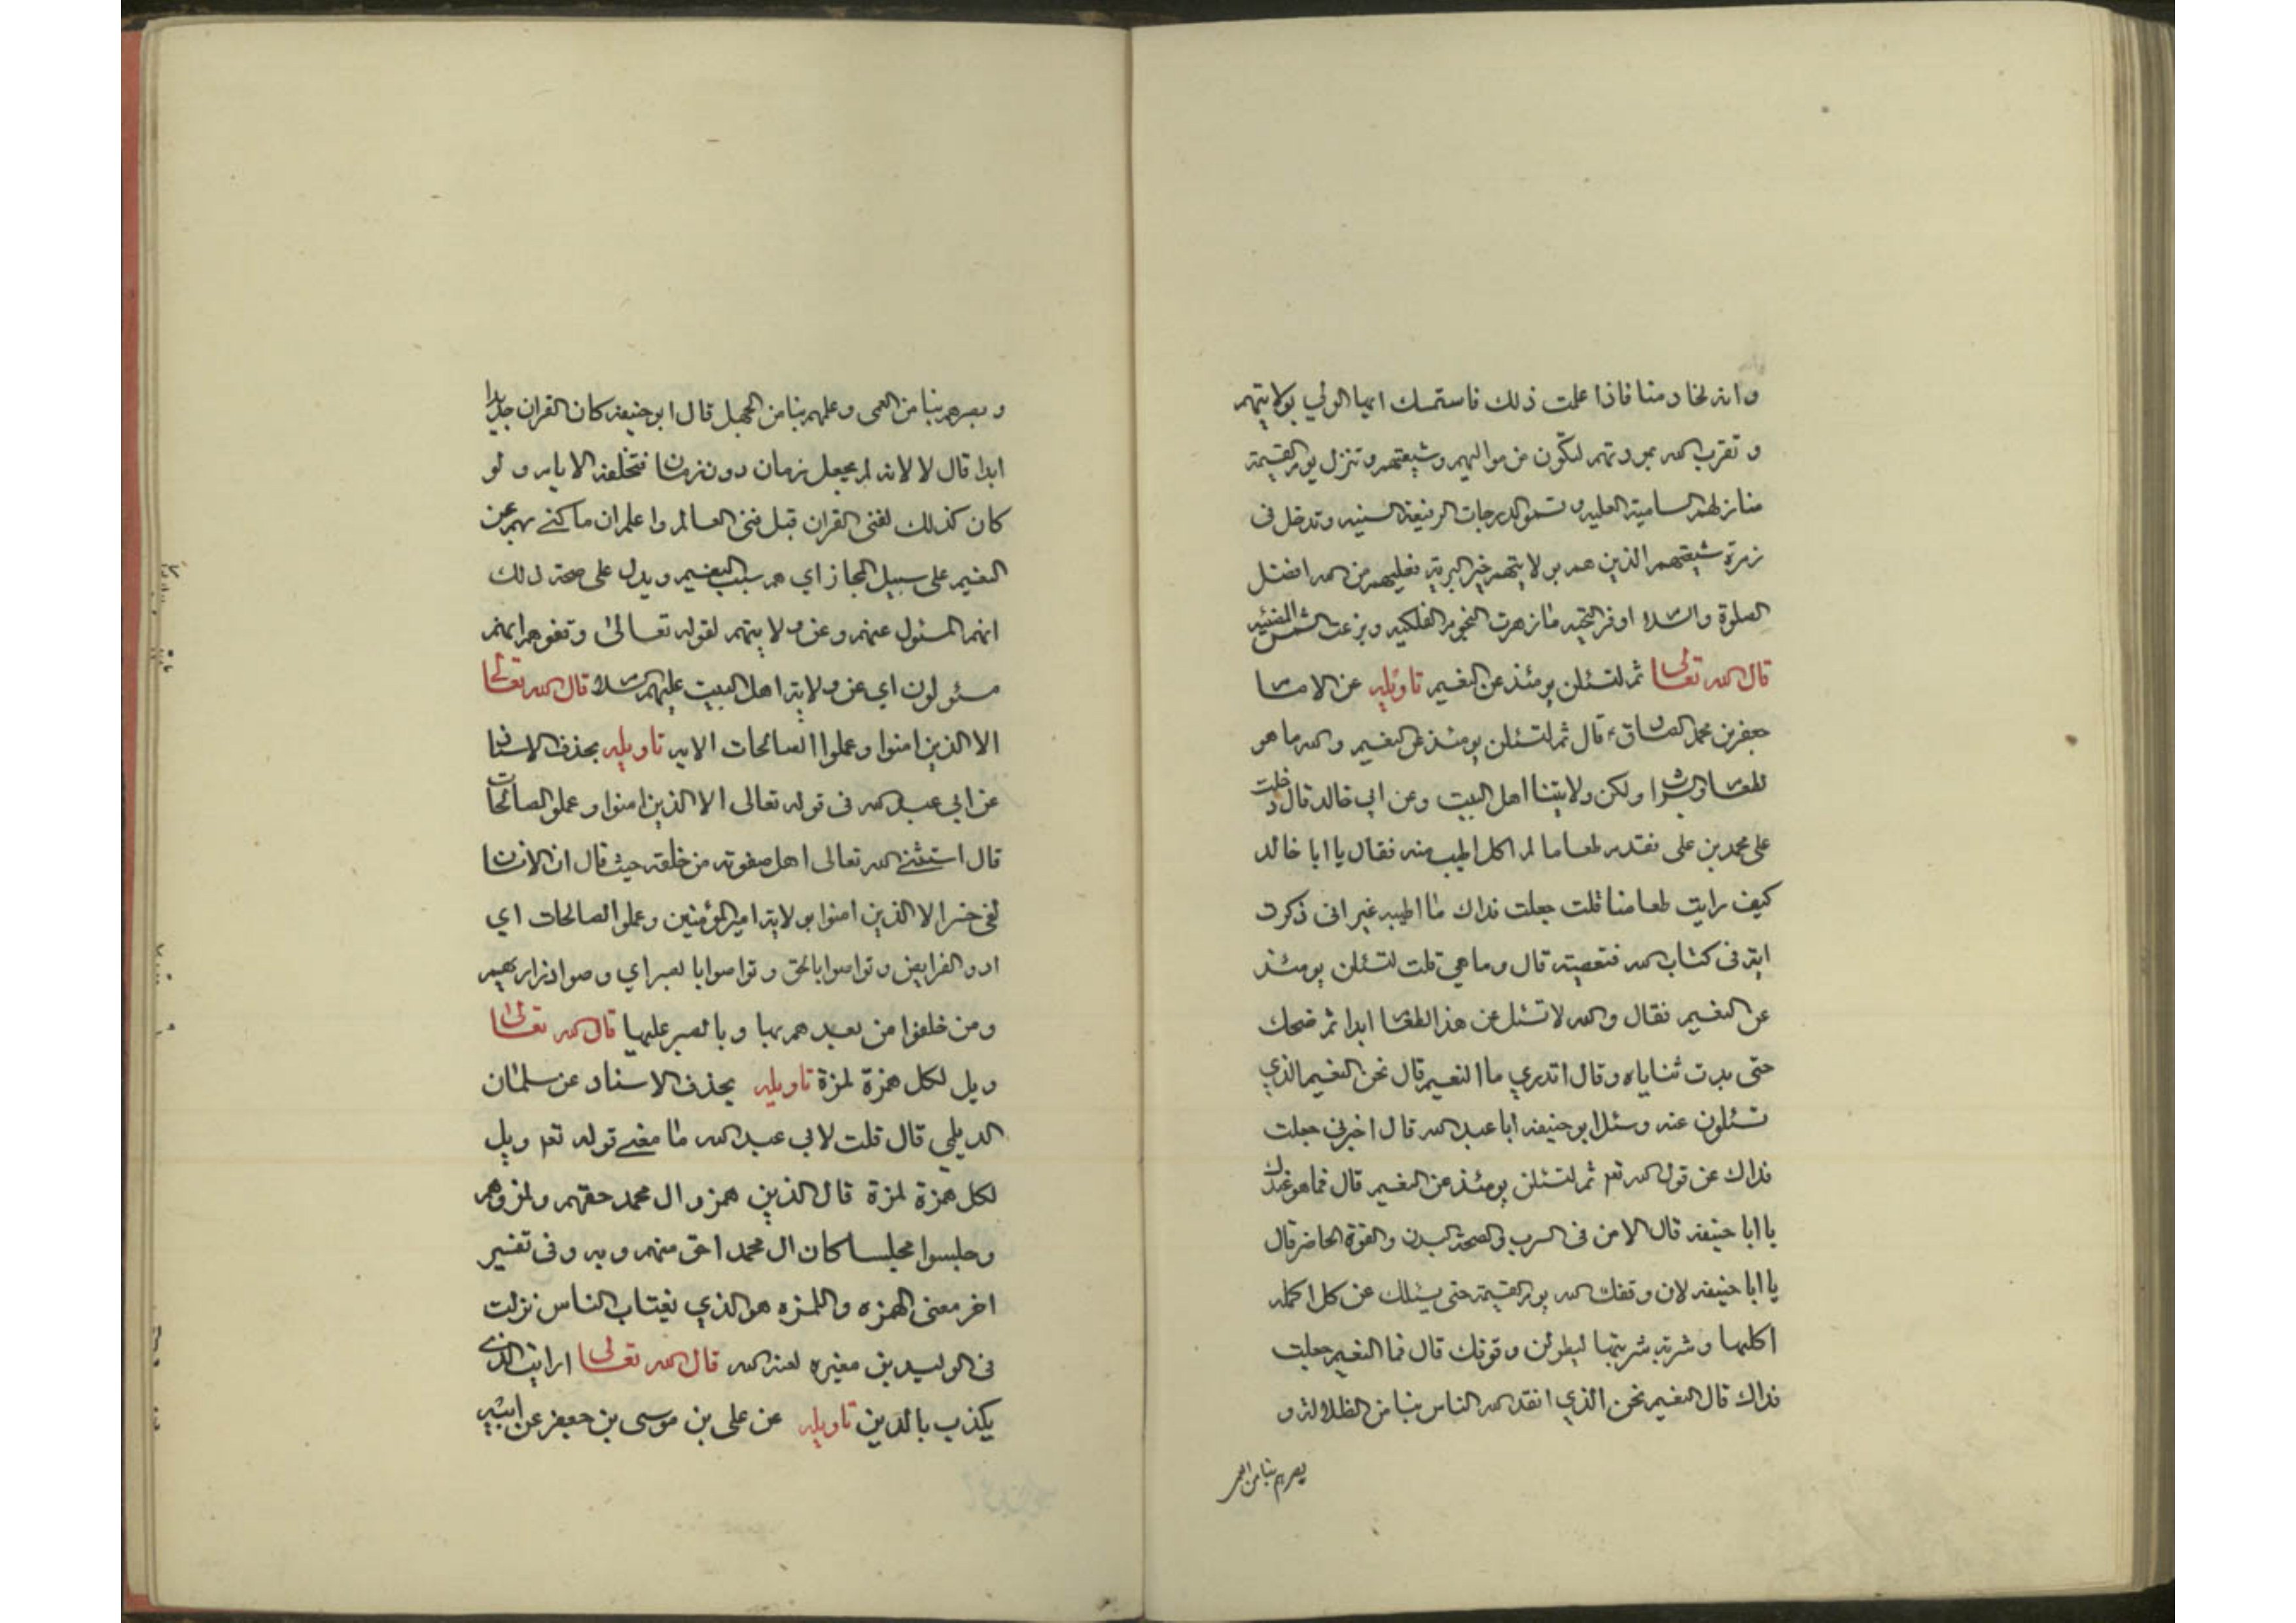 وانه لخادمنا فاذا علمت ذلك فاستمسك ايها الولي بولايتهم
و تقرب الله بمودتهم لتكون من مواليهم وشيعتهم وتنزل يوم القيمة
منازلهم السامية العليه و تسمو الدرجات الرفيعة السنيه وتدخل فى
زمرة شيعتهم الذين هم بولايتهم خير البرية فعليهم من الله افضل
الصلوة والسلام اوفر التحيه ما زهرت النجوم الفلكيه وبزغت الشمس المضيئه
قال الله تعالى ثم لتسئلن يومئذ عن النعيم تاويله عن الامام
جعفر بن محمد الصادق ع قال ثم لتسئلن يومئذ عن النعيم والله ما هو
الطعام والشراب ولكن ولايتنا اهل البيت وعن ابي خالد قال دخلت
على محمد بن على فقدم طعاما لم اكل اطيب منه فقال يا ابا خالد
كيف رايت طعامنا قلت جعلت فداك ما اطيبه غير انى ذكرت
اية فى كتاب الله فنغصته قال وما هي قلت لتسئلن يومئذ
عن النعيم فقال والله لا تسئل عن هذا الطعام ابدا ثم ضحك
حتى بدت ثناياه وقال اتدري ما النعيم قال نحن النعيم الذي
تسئلون عنه وسئل ابو حنيفه ابا عبد الله قال اخبرني جعلت
فداك عن قول الله تعم ثم لتسئلن يومئذ عن النعيم قال فما هو عندك
يا ابا حنيفه قال الامن فى السرب و الصحة البدن والقوة الحاضر قال
يا ابا حنيفه لان وقفك الله يوم القيمة حتى يسئلك عن كل اكله
اكلتها وشربة شربتها ليطولن وقوفك قال فما النعيم جعلت
فداك قال النعيم نحن الذي انقد الله الناس بنا من الظلالة و
يصرهم بنا من العمى
و بصرهم بنا من العمى وعلمهم بنا من الجهل قال ابو حنيفه كان القران جديدا
ابدا قال لا لانه لم يجعل زمان دون زمان فتخلفه الايام و لو
كان كذلك لفنى القران قبل فنى العالم واعلم ان ما كنى بهم عن
النعيم على سبيل المجاز اي هم سبب النعيم ويدل على صحة ذلك
انهم المسئول عنهم وعن ولايتهم لقوله تعالى وقفوهم انهم
مسئولون اي عن ولاية اهل البيت عليهم السلام قال الله تعالى
الا الذين امنوا وعملوا الصالحات الايه تاويله بحذف الاسناد
عن ابي عبد الله فى قوله تعالى الا الذين امنوا وعملوا الصالحات
قال استثنى الله تعالى اهل صفوته من خلقه حيث قال ان الانسان
لفى خسر الا الذين امنوا بولاية امير المؤمنين وعملوا الصالحات اي
ادو الفرايض وتواصوا بالحق وتواصوا بالصبر اي وصوا ذراريهم
ومن خلفوا من بعدهم بها وبالصبر عليها قال الله تعالى
ويل لكل همزة لمزة تاويله بحذف الاسناد عن سلمان
الديلمي قال قلت لابي عبد الله ما معنى قوله تعم ويل
لكل همزة لمزة قال الذين همزو ال محمد حقهم ولمزوهم
وجلسوا مجلسا كان ال محمد احق منهم وبه وفى تفسير
اخر معنى الهمزه واللمزه هو الذي يغتاب الناس نزلت
فى الوليد بن مغيره لعنه الله قال الله تعالى ارايت الذى
يكذب بالدين تاويله عن على بن موسى بن جعفر عن ابيه